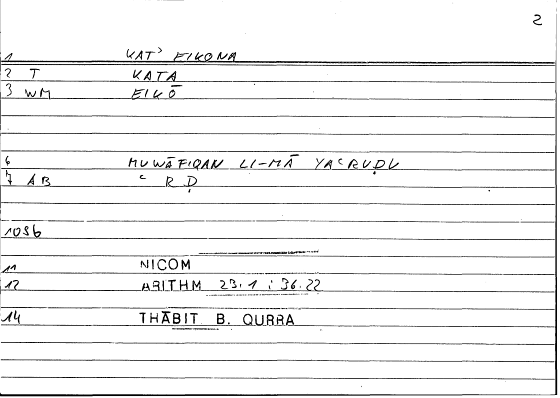 2
1 KAT' EIKONA
2 T KATA
3 WM EIKŌ
6 MUWĀFIQAN LI-MĀ YAʿRUḌU
7 AB ʿ R Ḍ
1056
11 NICOM
12 ARITHM 23.1 : 36.22
14 THĀBIT B. QURRA